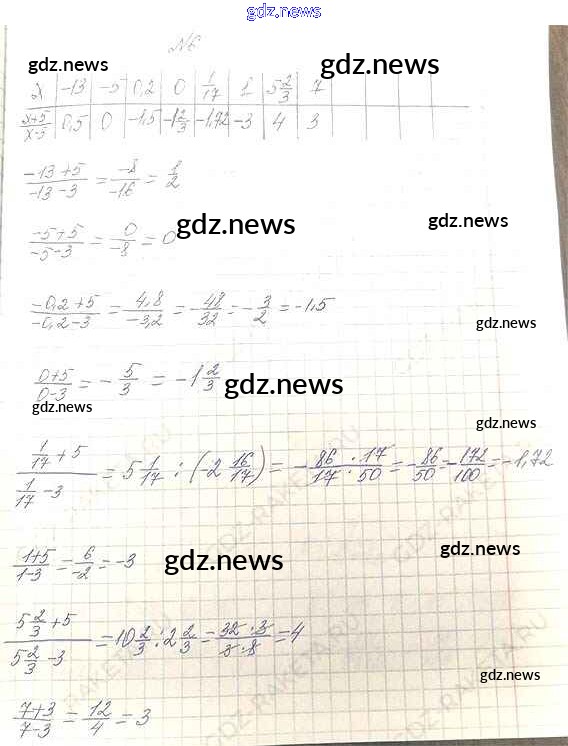 gdz.news
N6
gdz.news gdz.news
x | -13 | -5 | 0,2 | 0 | 1/17 | 1 | 5 2/3 | 7
(x+5)/(x-3) | 0,5 | 0 | -1,5 | -1 2/3 | -1,72 | -3 | 4 | 3
(-13+5)/(-13-3) = -8/-16 = 1/2
gdz.news gdz.news
(-5+5)/(-5-3) = 0/-8 = 0
(-0,2+5)/(-0,2-3) = 4,8/-3,2 = -48/32 = -3/2 = -1,5
gdz.news
(0+5)/(0-3) = -5/3 = -1 2/3
gdz.news
gdz.news
gdz.news
(1/17+5)/(1/17-3) = 5 1/17 : (-2 16/17) = -(86·17)/(17·50) = -86/50 = -172/100 = -1,72
gdz.news
gdz.news
(1+5)/(1-3) = 6/-2 = -3
(5 2/3+5)/(5 2/3-3) = 10 2/3 : 2 2/3 = (32·3)/(3·8) = 4
gdz.news
(7+3)/(7-3) = 12/4 = 3
gdz.news
GDZ-RAKETA.RU